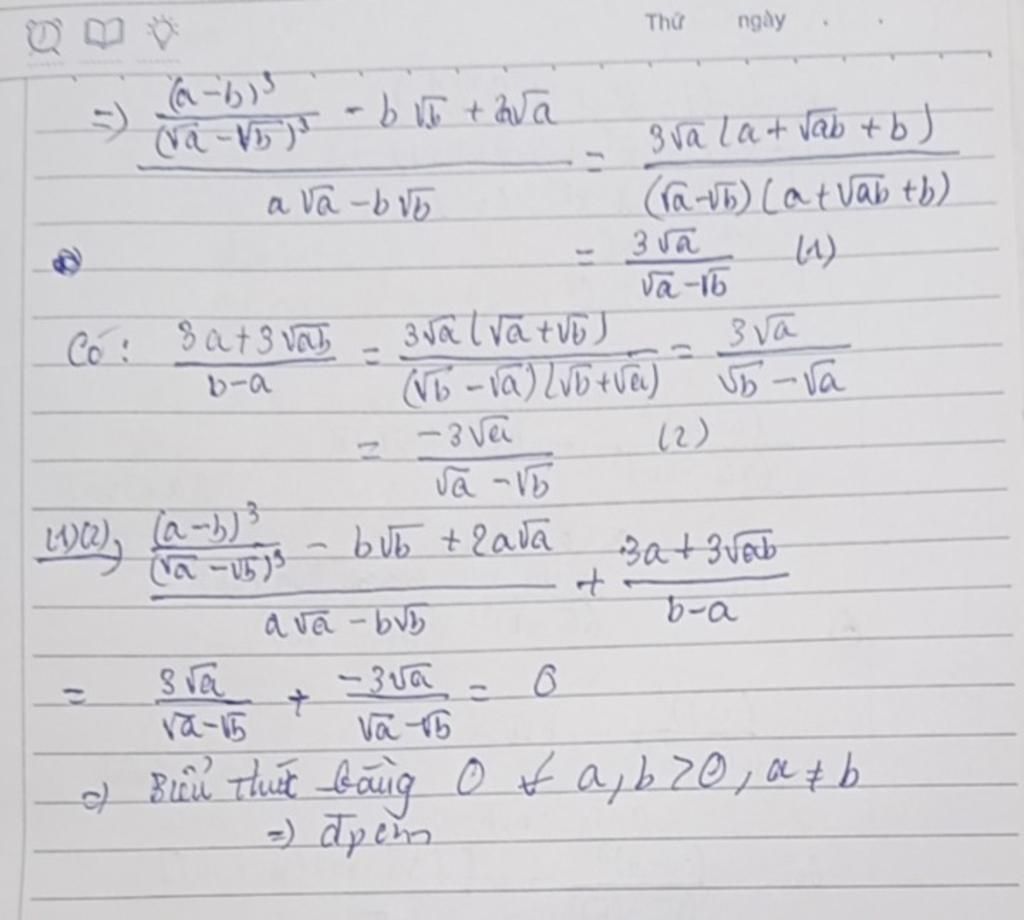 Thứ ngày . .
=> ((a-b)³/(√a - √b)³ - b√b + 2√a)/(a√a - b√b) = 3√a(a + √ab + b)/((√a-√b)(a+√ab+b))
= 3√a/(√a-√b) (1)
Có: (3a+3√ab)/(b-a) = 3√a(√a+√b)/((√b-√a)(√b+√a)) = 3√a/(√b-√a)
= -3√a/(√a-√b) (2)
(1)(2), ((a-b)³/(√a-√b)³ - b√b + 2a√a)/(a√a-b√b) + (3a+3√ab)/(b-a)
= 3√a/(√a-√b) + -3√a/(√a-√b) = 0
=> Biểu thức bằng 0 ∀ a, b > 0, a ≠ b
=> đpcm